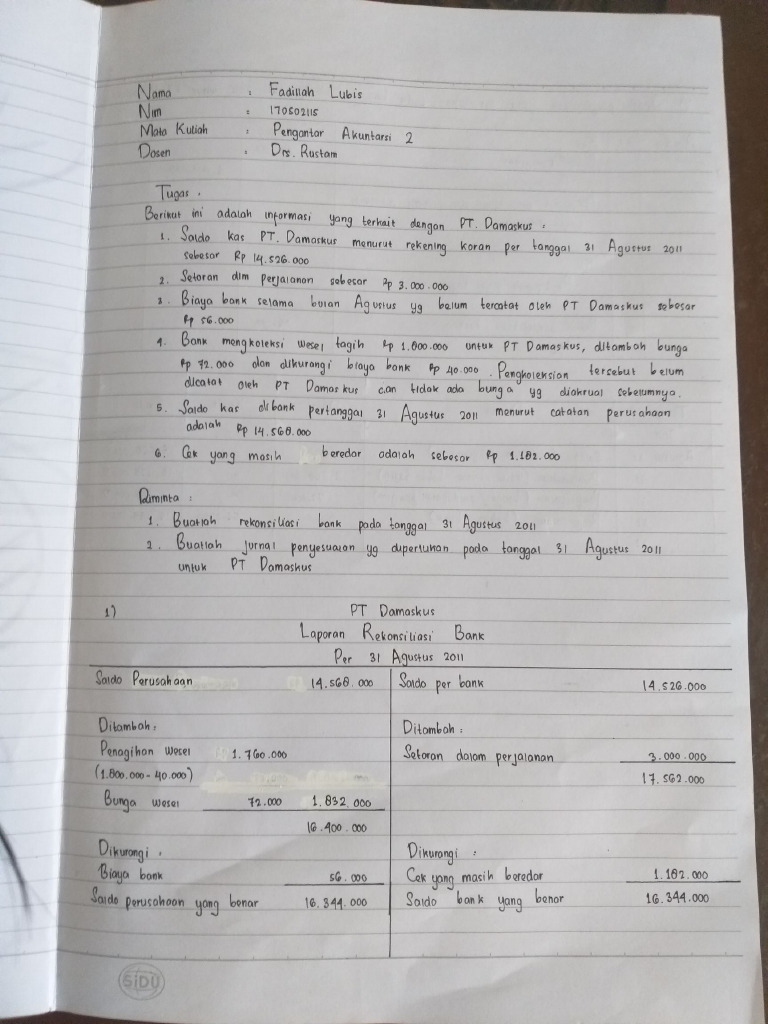 Nama : Fadillah Lubis
Nim : 170502115
Mata Kuliah : Pengantar Akuntansi 2
Dosen : Drs. Rustam
Tugas .
Berikut ini adalah informasi yang terkait dengan PT. Damaskus :
1. Saldo kas PT. Damaskus menurut rekening koran per tanggal 31 Agustus 2011
sebesar Rp 14.526.000
2. Setoran dlm perjalanan sebesar Rp 3.000.000
3. Biaya bank selama bulan Agustus yg belum tercatat oleh PT Damaskus sebesar
Rp 56.000
4. Bank mengkoleksi wesel tagih Rp 1.800.000 untuk PT Damaskus, ditambah bunga
Rp 72.000 dan dikurangi biaya bank Rp 40.000. Pengkoleksian tersebut belum
dicatat oleh PT Damaskus dan tidak ada bunga yg diakrual sebelumnya.
5. Saldo kas dibank pertanggal 31 Agustus 2011 menurut catatan perusahaan
adalah Rp 14.568.000
6. Cek yang masih beredar adalah sebesar Rp 1.182.000
Diminta :
1. Buatlah rekonsiliasi bank pada tanggal 31 Agustus 2011
2. Buatlah jurnal penyesuaian yg diperlukan pada tanggal 31 Agustus 2011
untuk PT Damaskus
1) PT Damaskus
Laporan Rekonsiliasi Bank
Per 31 Agustus 2011
Saldo Perusahaan 14.568.000 Saldo per bank 14.526.000
Ditambah : Ditambah :
Penagihan Wesel 1.760.000 Setoran dalam perjalanan 3.000.000
(1.800.000 - 40.000) 17.562.000
Bunga wesel 72.000 1.832.000
16.400.000
Dikurangi : Dikurangi :
Biaya bank 56.000 Cek yang masih beredar 1.182.000
Saldo perusahaan yang benar 16.344.000 Saldo bank yang benar 16.344.000
SiDU